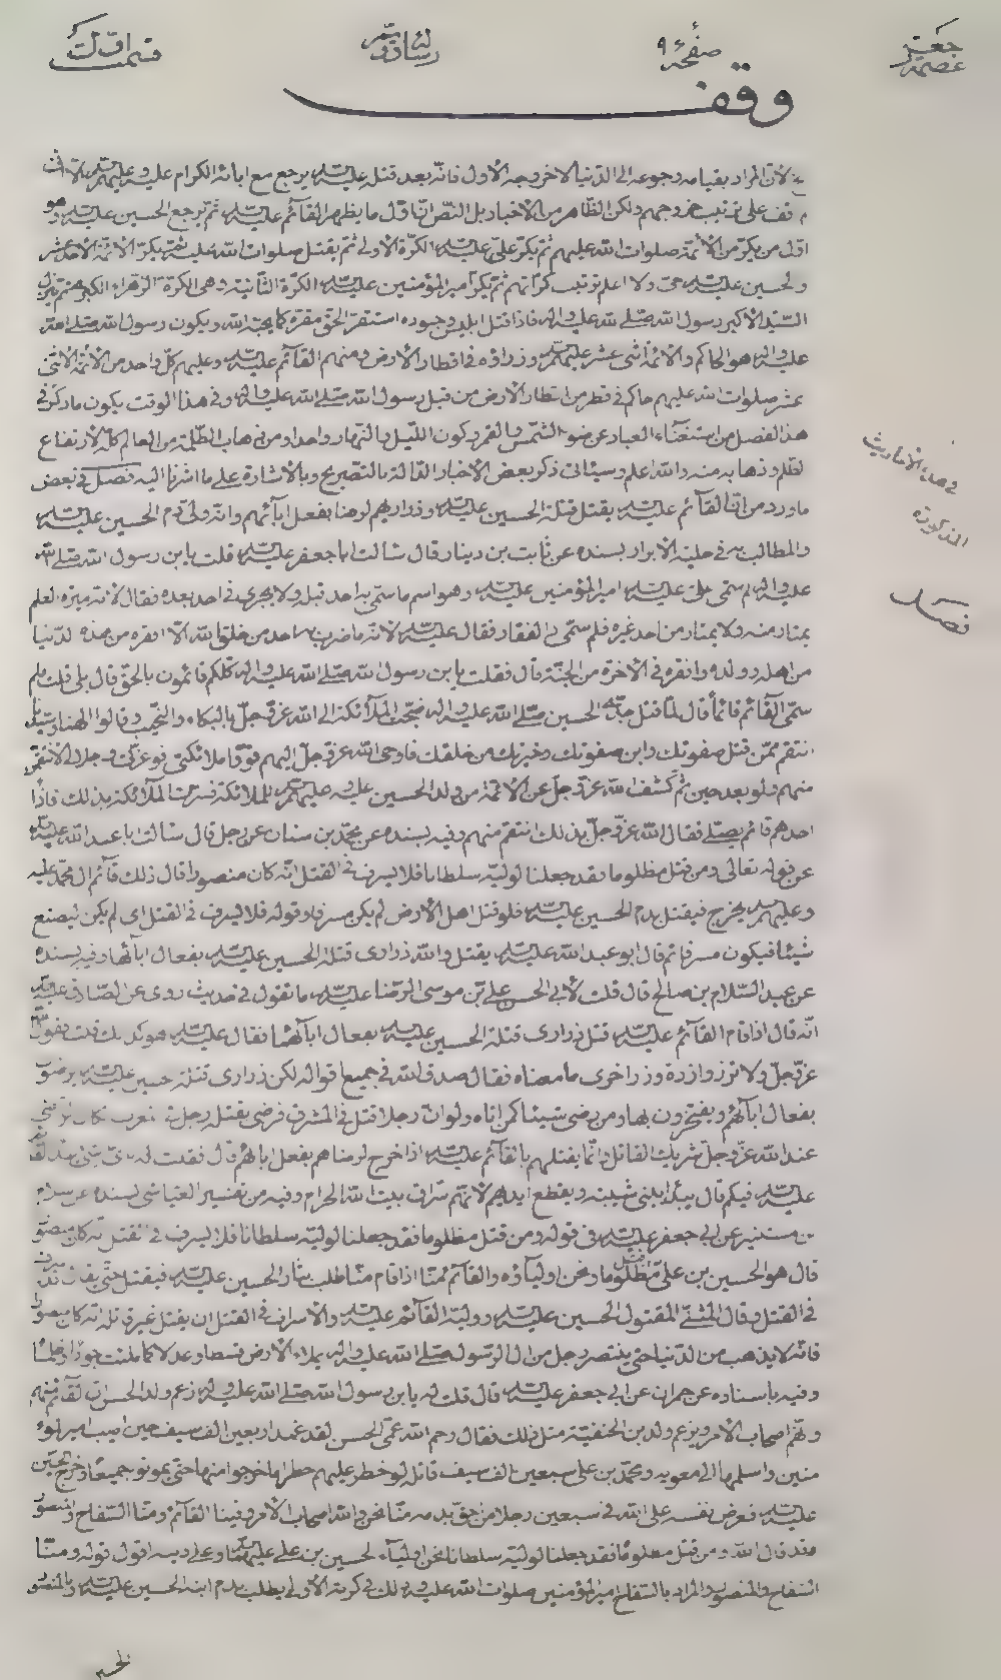 صفحه ٩
وقف
لان المراد بقيامه رجوعه الى الدنيا لا خروجه الاول فانه بعد قتله عليه السلام يرجع مع ابائه الكرام عليه وعليهم السلام
اقف على ترتيب خروجهم ولكن الظاهر من الاخبار بل النص ان اول ما يظهر القائم عليه السلام ثم يرجع الحسين عليه السلام وهو
اول من يكر من الائمة صلوات الله عليهم ثم يكر على عليه السلام الكرة الاولى ثم يقتل صلوات الله عليه ثم يكر الائمة الاحد عشر
والحسين عليه السلام حى ولا اعلم ترتيب كراتهم ثم يكر امير المؤمنين عليه السلام الكرة الثانية وهى الكرة الزهراء الكبرى ثم ينزل
السيد الاكبر رسول الله صلى الله عليه واله فاذا قتل ابليس وجوده استقر الحق مقره كما يحبه الله ويكون رسول الله صلى الله
عليه واله هو الحاكم والائمة اثنى عشر عليهم السلام وزراؤه فى اقطار الارض ومنهم القائم عليه السلام وعليهم كل واحد من الائمة الاثنى
عشر صلوات الله عليهم حاكم فى قطر من اقطار الارض من قبل رسول الله صلى الله عليه واله وفى هذا الوقت يكون ما ذكر فى
هذا الفصل من استغناء العباد عن ضوء الشمس والقمر وكون الليل والنهار واحدا ومن ذهاب الظلمة من العالم كله لارتفاع
الظلم وذهابه منه والله اعلم وسيئاتى ذكر بعض الاخبار الدالة بالتصريح وبالاشارة على ما اشرنا اليه فصل فى بعض
فى هذه الاحاديث
المذكورة
فصل
ما ورد من ان القائم عليه السلام يقتل قتلة الحسين عليه السلام وذراريهم لرضا بفعل ابائهم وانه ولى دم الحسين عليه السلام
والمطالب به فى حلية الابرار بسنده عن ثابت بن دينار قال سالت ابا جعفر عليه السلام قلت يابن رسول الله صلى الله
عليه واله لم سمى على عليه السلام امير المؤمنين عليه السلام وهو اسم ما سمى به احد قبله ولا يجرى فى احد بعده فقال لانه ميرة العلم
يمتار منه ولا يمتار من احد غيره فلم سمى ذى الفقار فقال عليه السلام لانه ما ضرب به احد من خلق الله الا افقره من هذه الدنيا
من اهله وولده وافقره فى الاخرة من الجنة قال فقلت يابن رسول الله صلى الله عليه واله كلكم قائمون بالحق قال بلى قلت فلم
سمى القائم قائما قال لما قتل جدى الحسين صلى الله عليه واله ضجت الملائكة الى الله عز وجل بالبكاء والنحيب وقالوا الهنا وسيدنا
انتقم ممن قتل صفوتك وابن صفوتك وخيرتك من خلقك فاوحى الله عز وجل اليهم قروا ملائكتى فوعزتى وجلالى لانتقمن
منهم ولو بعد حين ثم كشف الله عز وجل عن الائمة من ولد الحسين عليه وعليهم السلام للملائكة فسرت الملائكة بذلك فاذا
احدهم قائم يصلى فقال الله عز وجل بذلك انتقم منهم وفيه بسنده عن محمد بن سنان عن رجل قال سالت ابا عبد الله عليه السلام
عن قوله تعالى ومن قتل مظلوما فقد جعلنا لوليه سلطانا فلا يسرف فى القتل انه كان منصورا قال ذلك قائم ال محمد عليه
وعليهم السلام يخرج فيقتل بدم الحسين عليه السلام فلو قتل اهل الارض لم يكن مسرفا وقوله فلا يسرف فى القتل اى لم يكن ليصنع
شيئا فيكون مسرفا ثم قال ابو عبد الله عليه السلام يقتل والله ذرارى قتلة الحسين عليه السلام بفعال ابائها وفيه بسنده
عن عبد السلام بن صالح قال قلت لابى الحسن على بن موسى الرضا عليه السلام ما تقول فى حديث روى عن الصادق عليه السلام
انه قال اذا قام القائم عليه السلام قتل ذرارى قتلة الحسين عليه السلام بفعال ابائها فقال عليه السلام هو كذلك قلت فقول الله
عز وجل ولا تزر وازرة وزر اخرى ما معناه فقال صدق الله فى جميع اقواله لكن ذرارى قتلة الحسين عليه السلام يرضون
بفعال ابائهم ويفتخرون بها ومن رضى شيئا كمن اتاه ولو ان رجلا قتل فى المشرق فرضى بقتله رجل فى المغرب لكان الراضى
عند الله عز وجل شريك القاتل وانما يقتلهم بالقائم عليه السلام اذا خرج لرضاهم بفعل ابائهم قال فقلت له باى شئ يبدء القائم
عليه السلام فيكم قال يبدا ببنى شيبة ويقطع ايديهم لانهم سراق بيت الله الحرام وفيه من تفسير العياشى بسنده عن سلام
بن مستنير عن ابى جعفر عليه السلام فى قوله ومن قتل مظلوما فقد جعلنا لوليه سلطانا فلا يسرف فى القتل انه كان منصورا
قال هو الحسين بن على قتل مظلوما ونحن اوليآؤه والقائم منا اذا قام منا طلب بثار الحسين عليه السلام فيقتل حتى يقال قد اسرف
فى القتل وقال المسمى المقتول الحسين عليه السلام ووليه القائم عليه السلام والاسراف فى القتل ان يقتل غير قاتله انه كان منصورا
فانه لا يذهب من الدنيا حتى ينتصر رجل من ال الرسول صلى الله عليه واله يملاء الارض قسطا وعدلا كما ملئت جورا وظلما
وفيه باسناده عن حمران عن ابى جعفر عليه السلام قال قلت له يابن رسول الله صلى الله عليه واله زعم ولد الحسن ان القائم منهم
وانهم اصحاب الامر ويزعم ولد بن الحنفية مثل ذلك فقال رحم الله عمى الحسن لقد غمد اربعين الف سيف حين اصيب امير المؤ
منين واسلمها الى معوية ومحمد بن على سبعين الف سيف قاتله لو خطر عليهم خطر ما خرجوا منها حتى يموتو جميعا وخرج الحسين
عليه السلام فعرض نفسه على الله فى سبعين رجلا من احق بدمه منا نحن والله اصحاب الامر وفينا القائم ومنا السفاح والمنصور
وقد قال الله ومن قتل مظلوما فقد جعلنا لوليه سلطانا نحن اوليآء الحسين بن على عليهما السلام وعلى دينه اقول قوله ومنا
السفاح والمنصور والمراد بالسفاح امير المؤمنين صلوات الله عليه وذلك فى كرته الاولى يطلب بدم ابنه الحسين عليه السلام وبالمنصور
الحسين